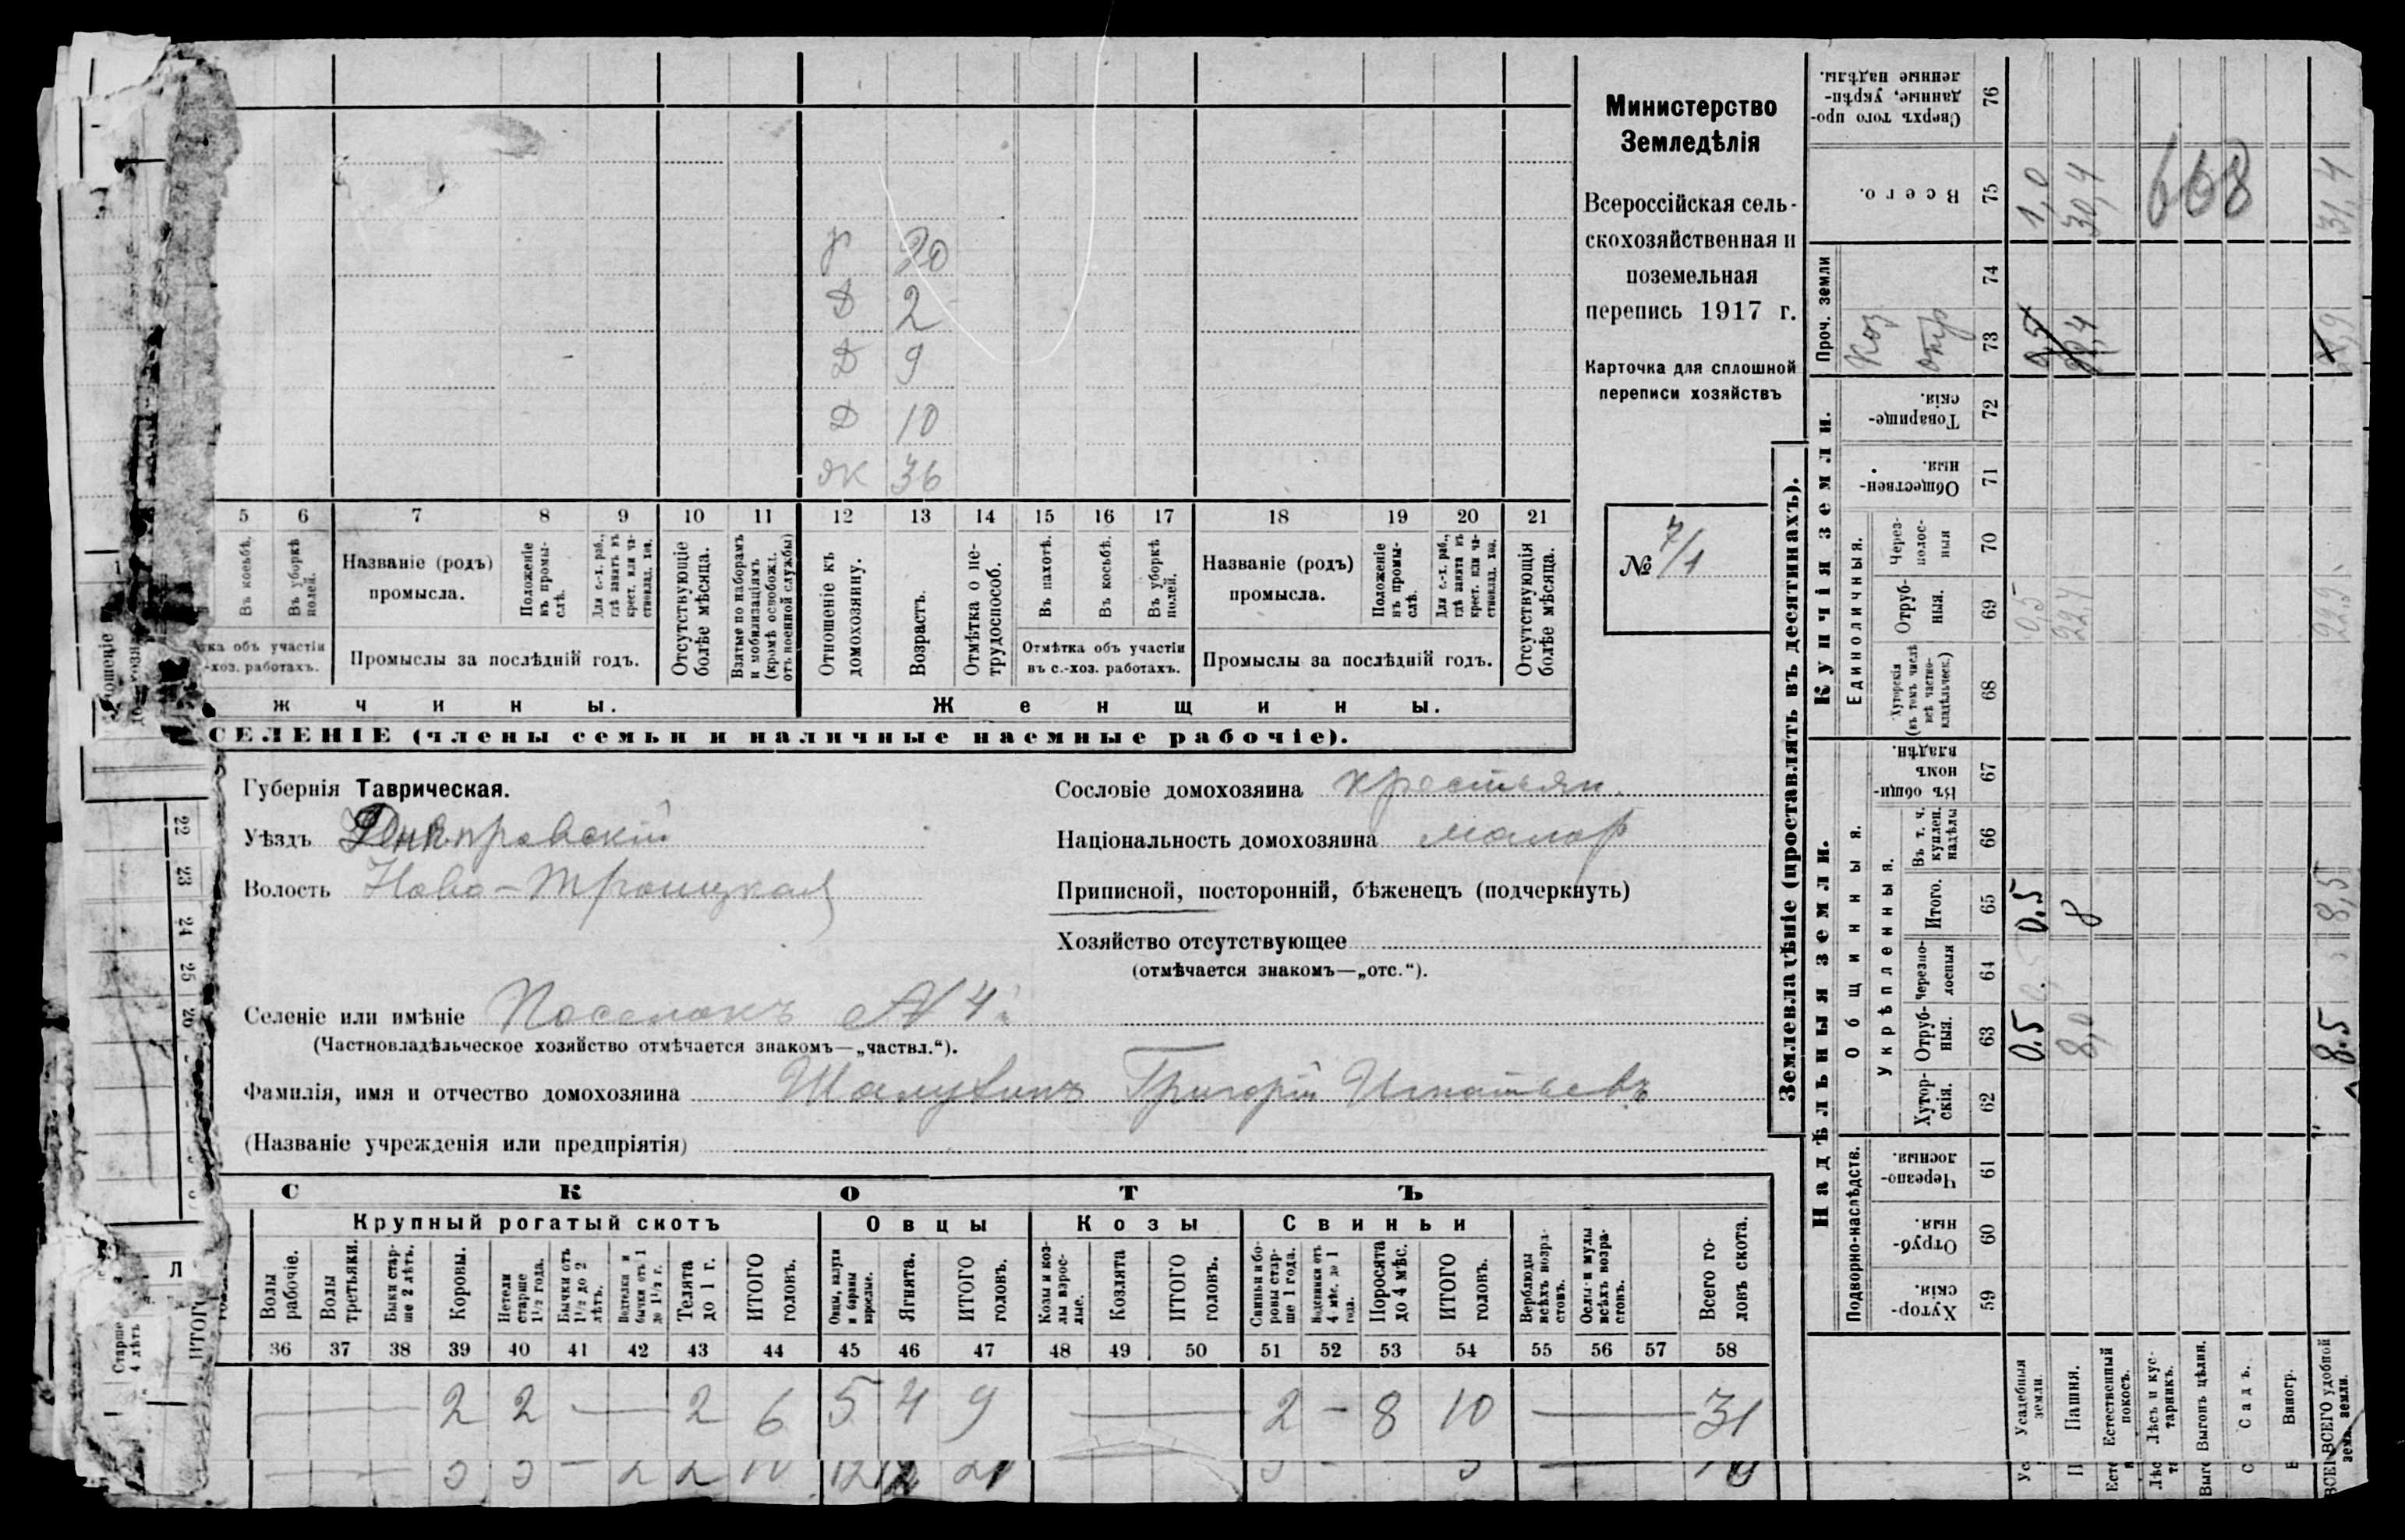 Р 20
Д 2
Д 9
Д 10
ЖК 36
5 6 7 8 9 10 11 12 13 14 15 16 17 18 19 20 21
Въ косьбѣ.
Въ уборкѣ полей.
Названіе (родъ) промысла.
Положеніе въ промыслѣ.
Для с.-х. раб., гдѣ занятъ въ крест. или частновлад. хоз.
Отсутствующіе болѣе мѣсяца.
Взятые по наборамъ и мобилизаціямъ (кромѣ освобожд. отъ военной службы)
Отношеніе къ домохозяину.
Возрастъ.
Отмѣтка о нетрудоспособ.
Въ пахотѣ.
Въ косьбѣ.
Въ уборкѣ полей.
Названіе (родъ) промысла.
Положеніе въ промыслѣ.
Для с.-х. раб., гдѣ занята въ крест. или частновлад. хоз.
Отсутствующія болѣе мѣсяца.
тка объ участіи
-хоз. работахъ.
Промыслы за послѣдній годъ.
Отмѣтка объ участіи
въ с.-хоз. работахъ.
Промыслы за послѣдній годъ.
ж ч и н ы.
Ж е н щ и н ы.
СЕЛЕНІЕ (члены семьи и наличные наемные рабочіе).
Министерство
Земледѣлія
Всероссійская сель-
скохозяйственная и
поземельная
перепись 1917 г.
Карточка для сплошной
переписи хозяйствъ
№ 7/1
Губернія Таврическая.
Уѣздъ Днѣпровскій
Волость Ново-Троицкая
Сословіе домохозяина крестьян.
Національность домохозяина малор
Приписной, посторонній, бѣженецъ (подчеркнуть)
Хозяйство отсутствующее
(отмѣчается знакомъ—„отс.“).
Селеніе или имѣніе Поселокъ № 4
(Частновладѣльческое хозяйство отмѣчается знакомъ—„частвл.“).
Фамилія, имя и отчество домохозяина Шалухинъ Григорій Игнатьевъ
(Названіе учрежденія или предпріятія)
С К О Т Ъ
Крупный рогатый скотъ
Овцы
Козы
Свиньи
Волы рабочіе.
Волы третьяки.
Быки старше 2 лѣтъ.
Коровы.
Нетели старше 1½ года.
Бычки отъ 1½ до 2 лѣтъ.
Телята до 1 г.
ИТОГО головъ.
Овцы, валухи и бараны взрослые.
Ягнята.
ИТОГО головъ.
Козы и козлы взрослые.
Козлята
ИТОГО головъ.
Свиньи и боровы старше 1 года.
Подсвинки отъ 4 мѣс. до 1 года.
Поросята до 4 мѣс.
ИТОГО головъ.
Верблюды всѣхъ возрастовъ.
Ослы и мулы всѣхъ возрастовъ.
Всего головъ скота.
36 37 38 39 40 41 42 43 44 45 46 47 48 49 50 51 52 53 54 55 56 57 58
— 2 2 — 2 6 5 4 9 — 2 - 8 10 — 31
Старше 4 лѣтъ
22
23
24
25
Землевладѣніе (проставлять въ десятинахъ).
Надѣльныя земли.
Купчія земли.
Проч. земли
Подворно-наслѣдств.
Общинныя.
Укрѣпленныя.
Единоличныя.
Хуторскія. 59
Отрубныя. 60
Черезполосныя. 61
Хуторскія. 62
Отрубныя. 63
Черезполосныя 64
Итого. 65
Въ т. ч. куплен. надѣлы 66
Въ общинномъ владѣн. 67
Хуторскія (въ томъ числѣ всѣ частновладѣльческ.) 68
Отрубныя. 69
Черезполосныя 70
Общественныя. 71
Товарищескія. 72
73
74
Всего. 75
Сверхъ того проданные, укрѣпленные надѣлы. 76
Усадебныя земли. 0.5 0.5 0,5 1,0
Пашня. 8,0 8 22,4 30,4
Естественный покосъ.
Лѣсъ и кустарникъ.
Выгонъ цѣлин.
Садъ.
Виногр.
ВСЕГО удобной земли. 8.5 8,5 22,9 31,4
668